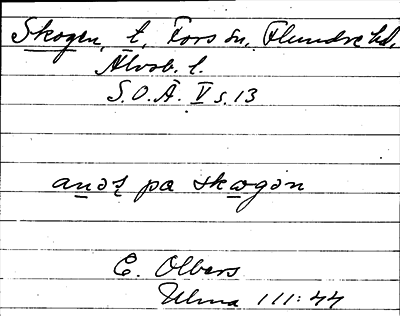 Skogen, t, Fors sn, Flundre hd,
Älvsb. l.
S.O.Ä. V s. 13
anəʒ pa skogən
E. Olbers
Ulma 111:44